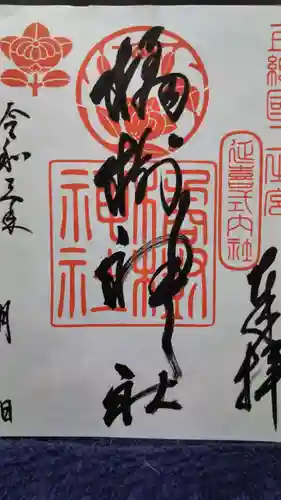 上総國二之宮
延喜式内社
奉拝
橘樹神社
橘樹
神社
令和三年 月 日